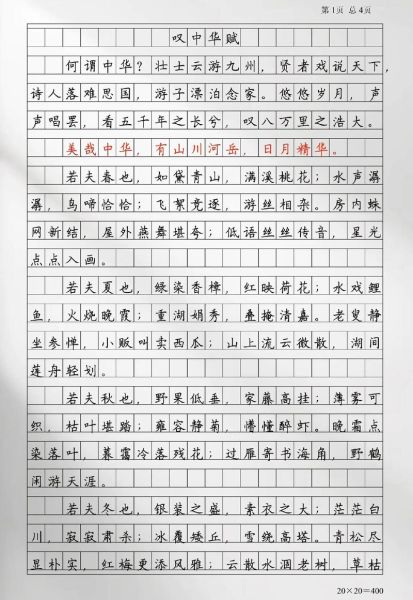 第1页 总4页
叹中华赋
何谓中华？壮士云游九州，贤者戏说天下，
诗人落难思国，游子漂泊念家。悠悠岁月，声
声唱罢，看五千年之长兮，叹八万里之浩大。
美哉中华，有山川河岳，日月精华。
若夫春也，如黛青山，满溪桃花；水声潺
潺，鸟啼恰恰；飞絮竞逐，游丝相杂。房内蛛
网新结，屋外燕舞堪夸；低语丝丝传音，星光
点点入画。
若夫夏也，绿染香樟，红映荷花；水戏鲤
鱼，火烧晚霞；重湖娟秀，叠掩清嘉。老叟静
坐参惮，小贩叫卖西瓜；山上流云微散，湖间
莲舟轻划。
若夫秋也，野果低垂，家藤高挂；薄雾可
织，枯叶堪踏；雍容静菊，懵懂醉虾。晚霜点
染落叶，暮霭冷落残花；过雁寄书海角，野鹤
闲游天涯。
若夫冬也，银装之盛，素衣之大；茫茫白
川，寂寂肃杀；冰覆矮丘，雪绕高塔。青松尽
显朴实，红梅更添风雅；云散水涸老树，草枯
20×20=400